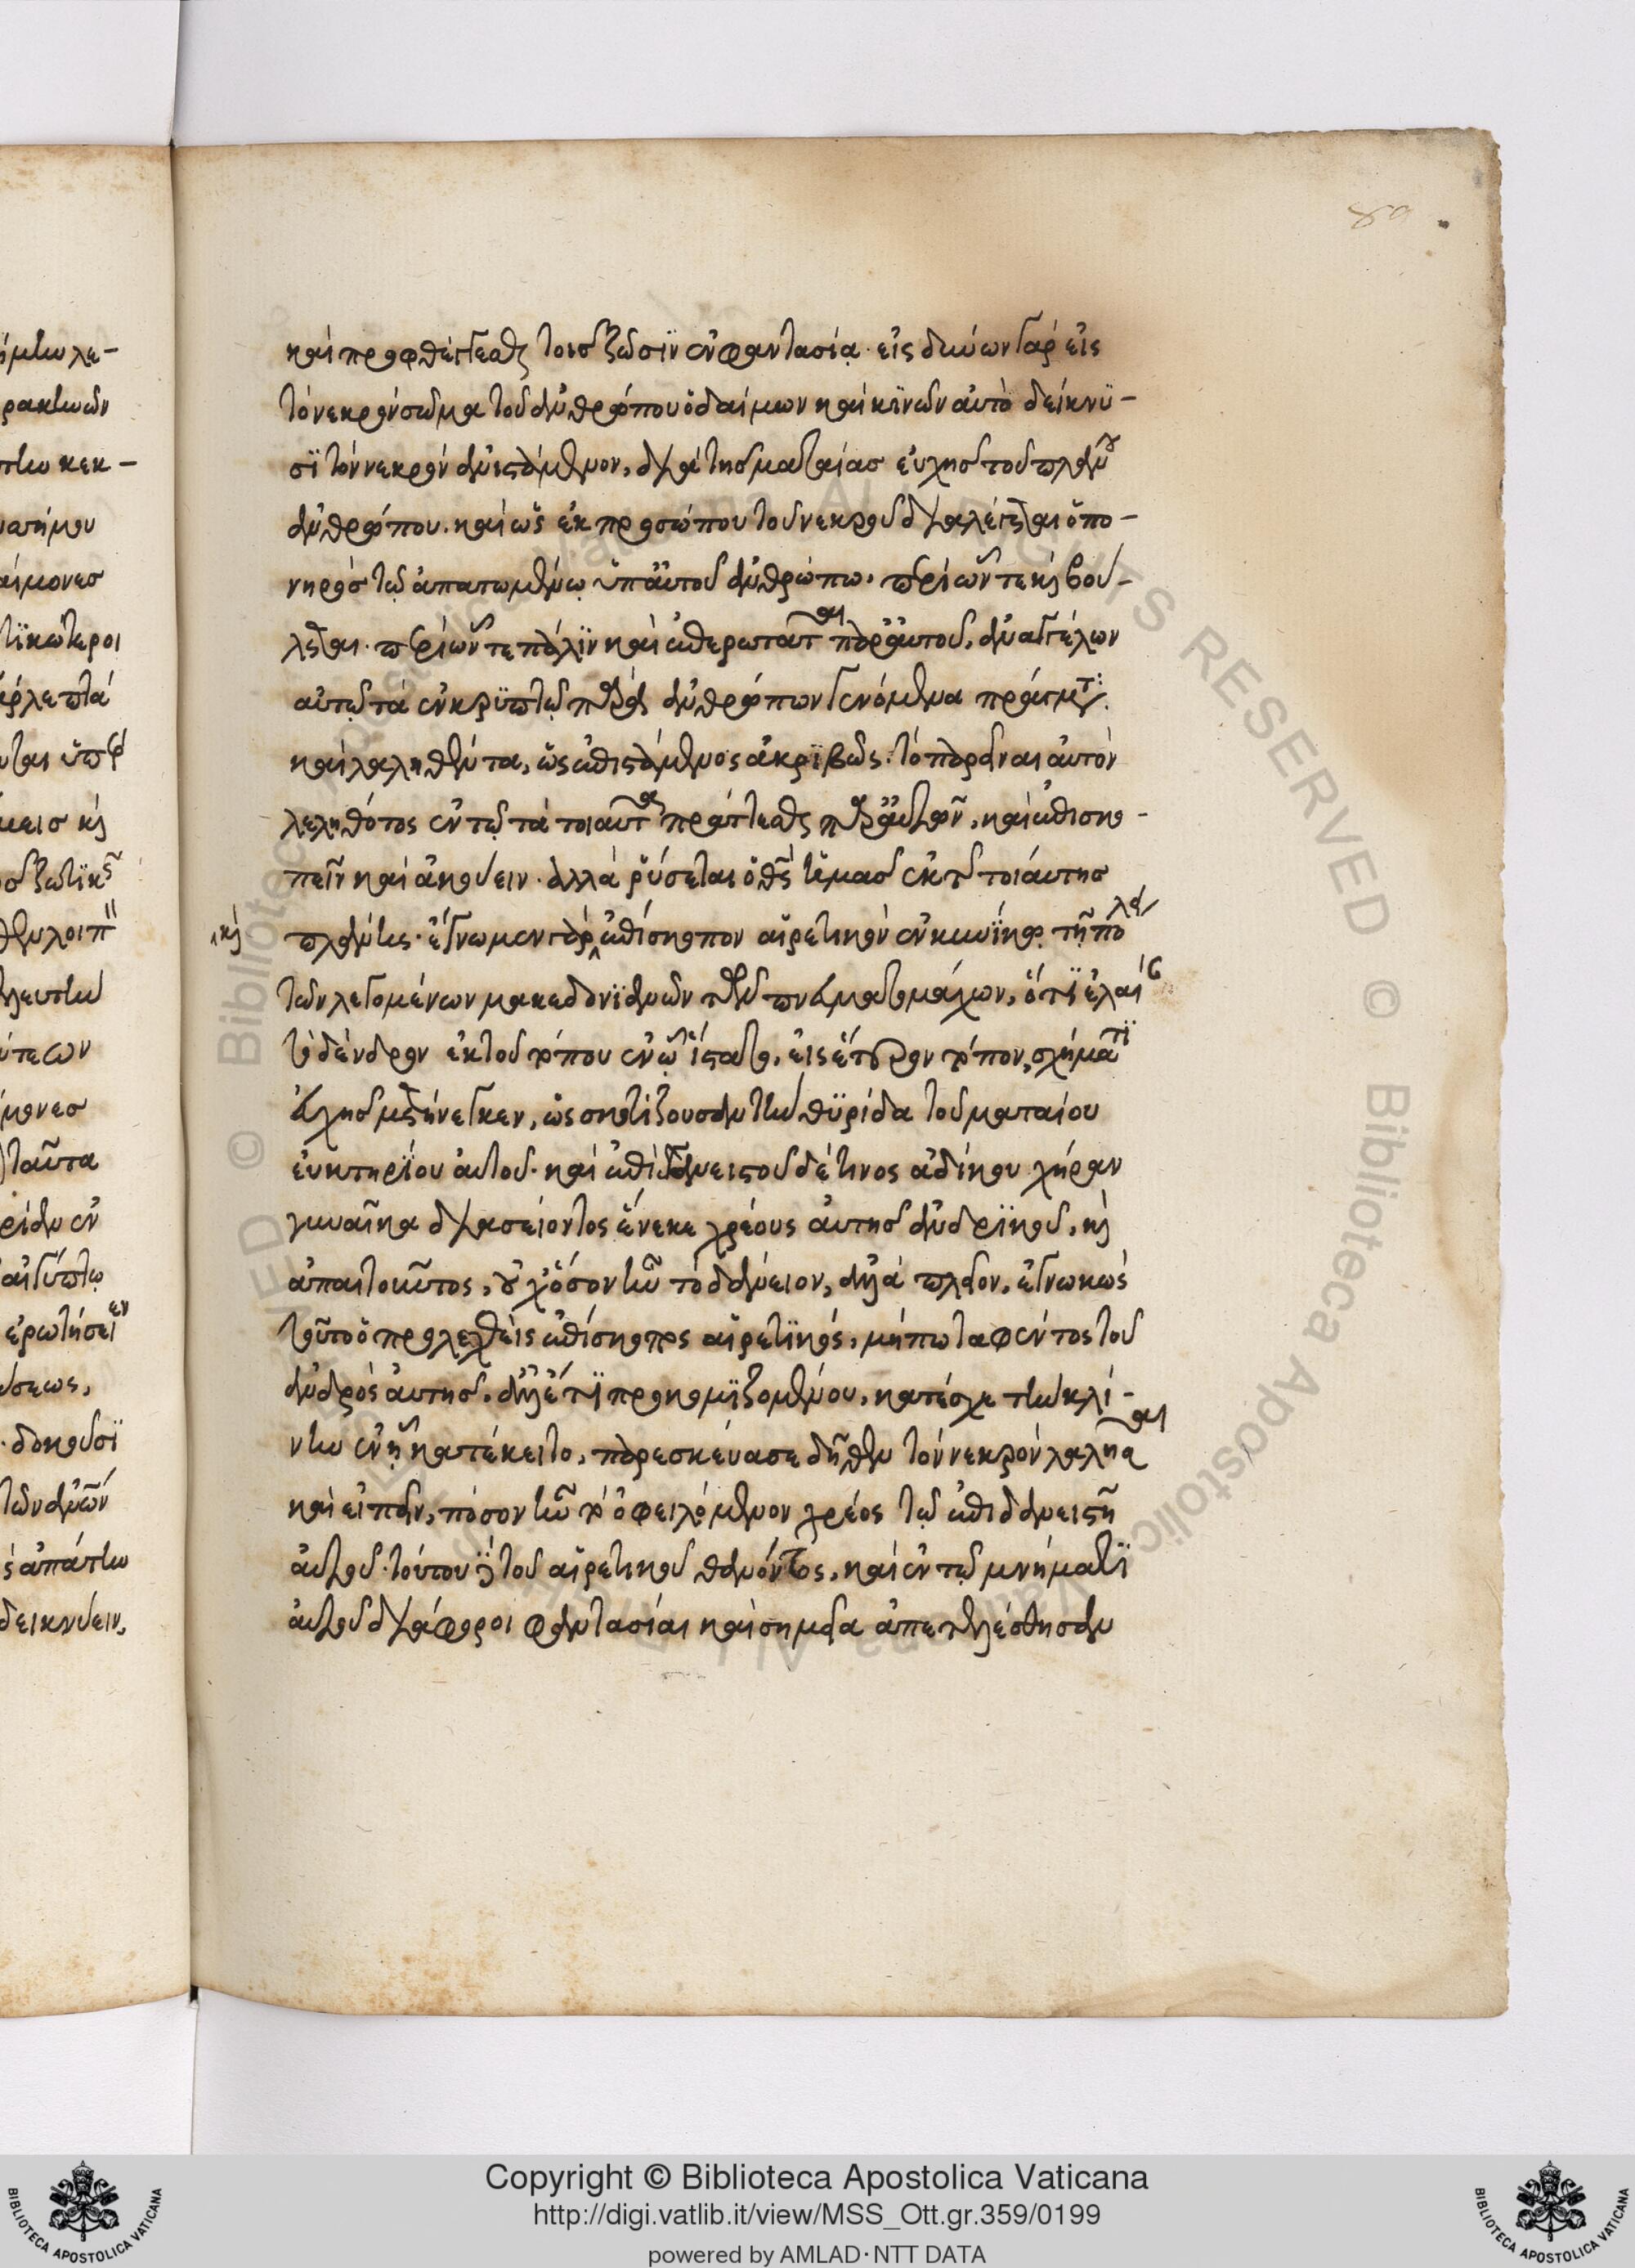 καὶ προφθέγγεσθαι τοῖς ζῶσιν ἐν φαντασίᾳ. εἰσδύνων γὰρ εἰς
τὸ νεκρὸν σῶμα τοῦ ἀνθρώπου ὁ δαίμων καὶ κινῶν αὐτὸ δείκνυ-
σι τὸν νεκρὸν ἀνιστάμενον, διὰ τῆς ματαίας εὐχῆς τοῦ πλάνου
ἀνθρώπου. καὶ ὡς ἐκ προσώπου τοῦ νεκροῦ διαλέγεται ὁ πο-
νηρὸς τῷ ἀπατωμένῳ ὑπ' αὐτοῦ ἀνθρώπῳ, περὶ ὧν τε καὶ βού-
λεται. περὶ ὧν τε πάλιν καὶ ἐπερωτᾶται παρ' αὐτοῦ, ἀναγγέλων
αὐτῷ τὰ ἐν κρυπτῷ παρὰ ἀνθρώπων γενόμενα πράγματα
καὶ λαληθέντα, ὡς ἐπιστάμενος ἀκριβῶς. τὸ παρεῖναι αὐτὸν
λεληθότος ἐν τῷ τὰ τοιαῦτα πράττεσθαι παρ' αὐτῶν, καὶ ἐπισκο-
πεῖν καὶ ἀκούειν. ἀλλὰ ῥύσεται ὁ θεὸς ἡμᾶς ἐκ τῆς τοιαύτης
πλάνης. ἔγνωμεν γὰρ ἐπίσκοπον αἱρετικὸν ἐν κυζίκῳ τῇ πόλει
καὶ
τῶν λεγομένων μακεδονιανῶν τῶν πνευματομάχων, ὅτι ἐλαίας
τὸ δένδρον ἐκ τοῦ τόπου ἐν ᾧ ἵστατο, εἰς ἕτερον τόπον, σχήματι
εὐχῆς μετήνεγκεν, ὡς σκοτίζουσαν τὴν θυρίδα τοῦ ματαίου
εὐκτηρίου αὐτοῦ. καὶ ἐπὶ δανειστοῦ δέ τινος ἀδίκου χήραν
γυναῖκα διασείοντος ἕνεκε χρέους αὐτῆς ἀνδρικοῦ, καὶ
ἀπαιτοῦντος, οὐχ ὅσον ἦν τὸ δάνειον, ἀλλὰ πλεῖον, ἐγνωκὼς
τοῦτο ὁ προλεχθεὶς ἐπίσκοπος αἱρετικός, μήπω ταφέντος τοῦ
ἀνδρὸς αὐτῆς, ἀλλ' ἔτι προκομιζομένου, κατέσχε τὴν κλί-
νην ἐν ᾗ κατέκειτο, παρεσκεύασε δῆθεν τὸν νεκρὸν λαλῆσαι
καὶ εἰπεῖν, πόσον ἦν τὸ ὀφειλόμενον χρέος τῷ ἐπὶ δανειστῇ
αὐτοῦ. τούτου δὲ τοῦ αἱρετικοῦ θανόντος, καὶ ἐν τῷ μνήματι
αὐτοῦ διάφοροι φαντασίαι καὶ σημεῖα ἀπετελέσθησαν
Copyright © Biblioteca Apostolica Vaticana
http://digi.vatlib.it/view/MSS_Ott.gr.359/0199
powered by AMLAD·NTT DATA
BIBLIOTECA APOSTOLICA VATICANA
BIBLIOTECA APOSTOLICA VATICANA